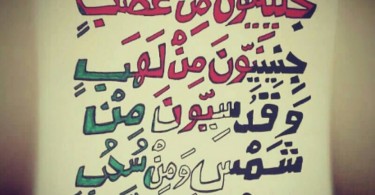 جنينيون من غضبٍ
جِنينيّونَ مِنْ لَهَبٍ
وَقُدسِيّونَ مِنْ
شَمْسٍ وَمِنْ سُحُبٍ